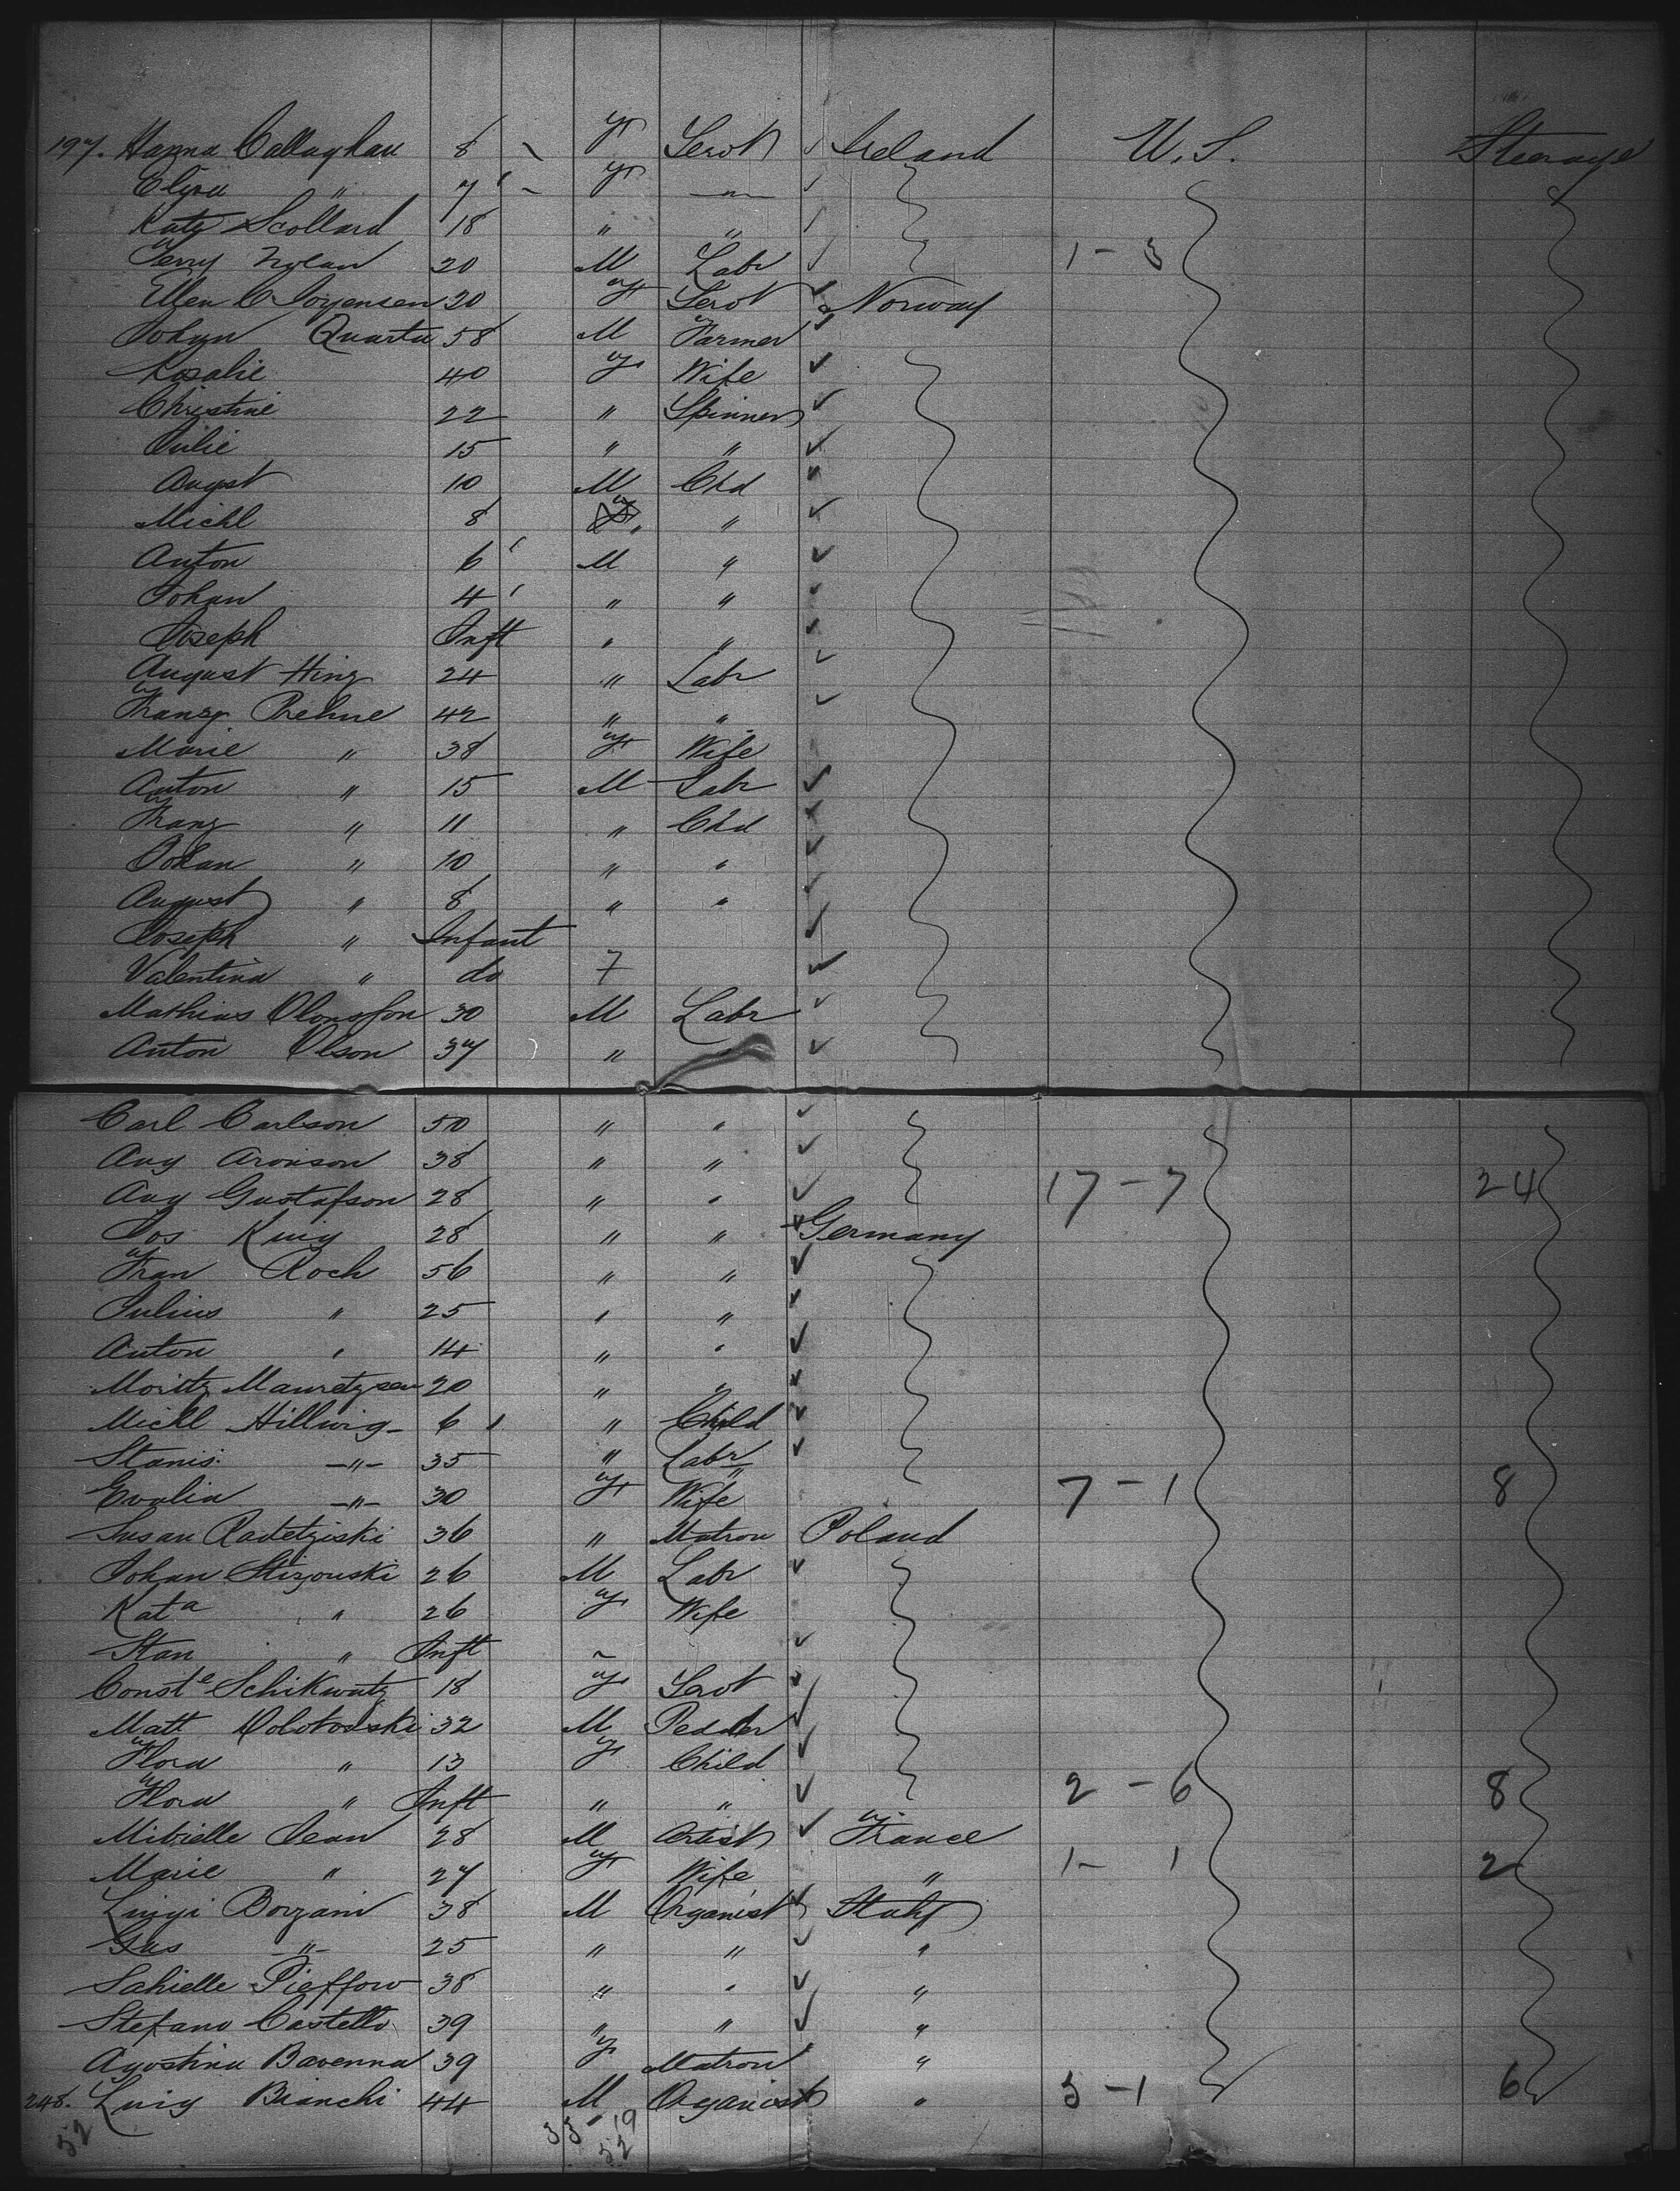 197. Hanna Callaghan 8 F Servt Ireland U.S. Steerage
Eliza " 7 F "
Katy Scollard 18 " "
Terry Nolan 20 M Labr 1 - 3
Ellen C Jorgensen 20 F Servt Norway
Johan Quarta 58 M Farmer
Rosalie 40 F Wife
Christine 22 " Spinner
Julie 15 " "
August 10 M Chd
Michl 8 "
Anton 6 M "
Johan 4 " "
Joseph Inft " "
August Hinz 24 " Labr
Franz Prehne 42 " "
Marie " 38 F Wife
Anton " 15 M Labr
Franz " 11 " Chd
Johan " 10 " "
August " 8 " "
Joseph " Infant
Valentina " do F
Mathias Olonsson 30 M Labr
Anton Olson 37 "
Carl Carlson 50 " "
Aug Aronson 38 " "
Aug Gustafson 28 " " 17 - 7 24
Jos King 28 " " Germany
Fran Roch 56 " "
Julius " 25 " "
Anton " 14 " "
Moritz Mauretzsen 20 " "
Michl Hillwig 6 " Child
Stanis: " 35 " Labr
Evalia " 30 F Wife 7 - 1 8
Susan Radetziski 36 " Matron Poland
Johan Stizouski 26 M Labr
Kata " 26 F Wife
Stan " Inft "
Conste Schikwutz 18 F Servt
Matt Dolotowski 32 M Pedder
Flora " 13 F Child
Flora " Inft " " 2 - 6 8
Mitrielle Jean 28 M Artist France
Marie " 27 F Wife " 1 - 1 2
Luigi Borzani 38 M Organist Italy
Gus " 25 " " "
Sahielle Pieffow 38 " " "
Stefano Castello 39 " " "
Agostina Bavenna 39 F Matron "
248. Luig Bianchi 44 M Organist " 5 - 1 6
52 33 - 19
52